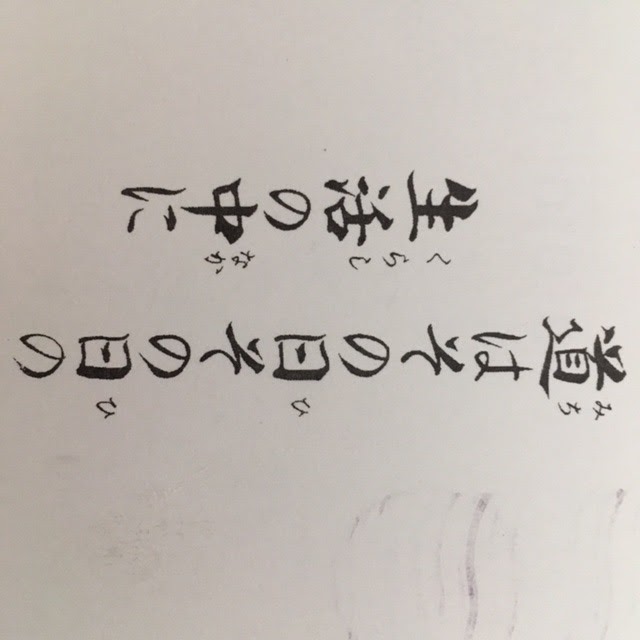 道はその日その日の
みち ひ ひ
生活の中に
くらし なか